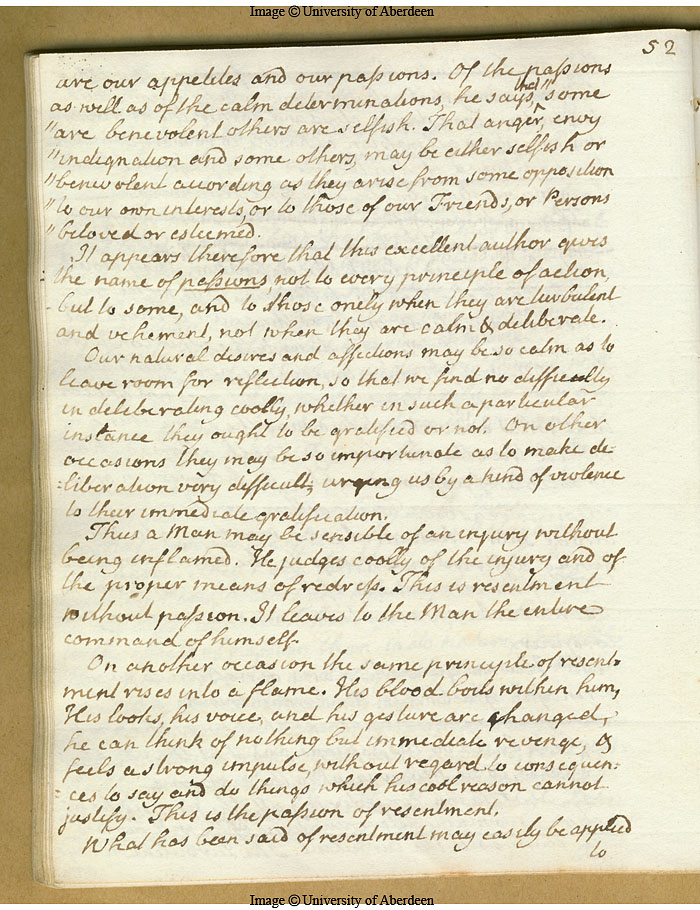 Image © University of Aberdeen
52
are our appetites and our passions. Of the passions
as well as of the calm determinations, he says, that "some
"are benevolent others are selfish. That anger, envy
"indignation and some others, may be either selfish or
"benevolent according as they arise from some opposition
"to our own interests, or to those of our Friends, or Persons
"beloved or esteemed.
It appears therefore that this excellent author gives
the name of passions, not to every principle of action,
but to some, and to those onely when they are turbulent
and vehement, not when they are calm & deliberate.
Our natural desires and affections may be so calm as to
leave room for reflection, so that we find no difficulty
in deliberating coolly, whether in such a particular
instance they ought to be gratified or not. On other
occasions they may be so importunate as to make de-
:liberation very difficult, urging us by a kind of violence
to their immediate gratification.
Thus a Man may be sensible of an injury without
being inflamed. He judges coolly of the injury and of
the proper means of redress. This is resentment
without passion. It leaves to the Man the entire
command of himself.
On another occasion the same principle of resent-
ment rises into a flame. His blood boils within him,
His looks, his voice, and his gesture are changed,
he can think of nothing but immediate revenge, &
feels a strong impulse, without regard to consequen:
:ces to say and do things which his cool reason cannot
justify. This is the passion of resentment.
What has been said of resentment may easily be applied
to
Image © University of Aberdeen